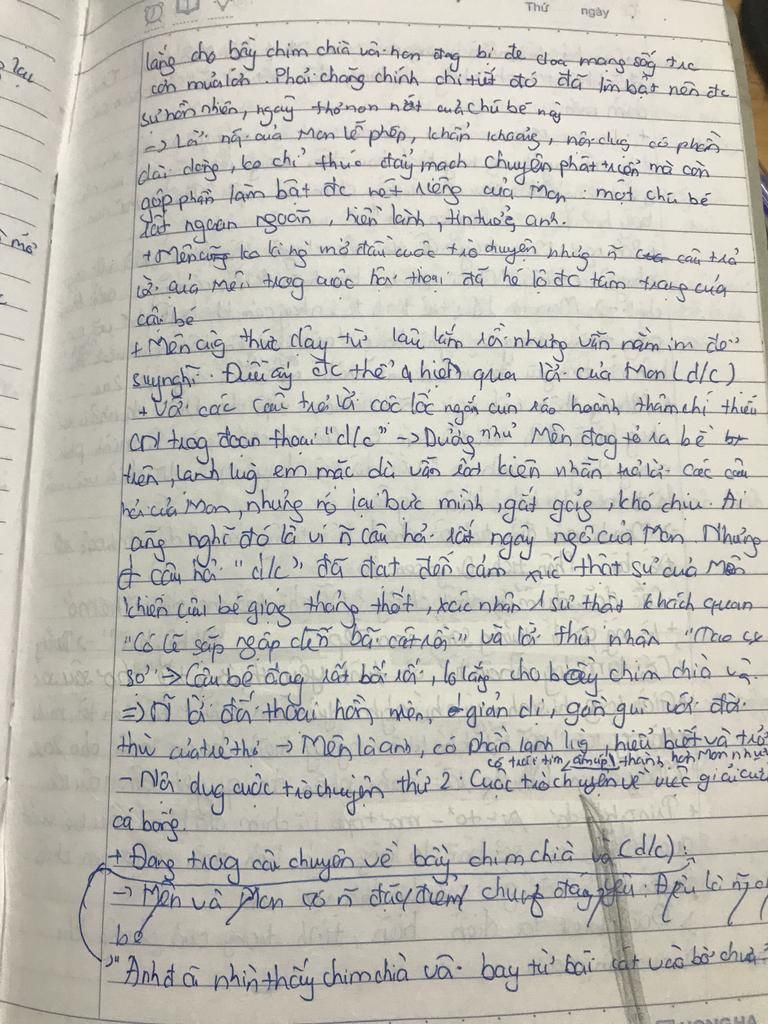 Thứ ngày
lắng cho bầy chim chìa vôi non đag bị đe doạ mạng sống trc
cơn mưa lớn. Phải chăng chính chi tiết đó đã làm bật nên đc
sự hồn nhiên, ngây thơ non nớt của chú bé này
=> Lời nói của Mon lễ phép, khẩn khoảng, nội dug có phần
dài dòng, ko chỉ thúc đẩy mạch chuyện phát triển mà còn
góp phần làm bật đc nét riêng của Mon: một chú bé
rất ngoan ngoãn, hiền lành, tin tưởg anh.
+ Mên ko là ng mở đầu cuộc trò chuyện nhưg ñ câu trả
lời của Mên trog cuộc hội thoại đã hé lộ đc tâm trạng của
cậu bé
+ Mên cũg thức dậy từ lâu lắm rồi nhưng vẫn nằm im để
suy nghĩ. Điều ấy đc thể hiện qua lời của Mon (d/c)
+ Với các câu trả lời cộc lốc ngắn củn ráo hoảnh thậm chí thiếu
CN trog đoạn thoại "d/c" -> Dường như Mên đag tỏ ra bề
trên, lạnh lùg em mặc dù vẫn rất kiên nhẫn trả lời các câu
hỏi của Mon, nhưng nó lại bực mình, gắt gỏg, khó chịu. Ai
cũg nghĩ đó là vì ñ câu hỏi rất ngây ngô của Mon. Nhưng
câu hỏi "d/c" đã đạt đến cảm xúc thật sự của Mên
khiến cậu bé giọng thảng thốt, xác nhận 1 sự thật khách quan
"Có lẽ sắp ngập đến bãi cát rồi" và lời thú nhận "Tao cx
sợ" -> Cậu bé đag rất bối rối, lo lắng cho bầy chim chìa vôi
=> ñ lời đối thoại hồn nhiên, giản dị, gần gũi với đời
thủ của trẻ thơ -> Mên là anh, có phần lạnh lùg, hiểu biết và
có trái tim hơn Mon
- Nội dug cuộc trò chuyện thứ 2: Cuộc trò chuyện về việc giải cứu
cá bống.
+ Đang trong câu chuyện về bầy chim chìa vôi (d/c):
-> Mên và Mon có ñ đặc điểm chung đáng yêu: Đều là
bé
"Anh đã nhìn thấy chim chìa vôi bay từ bãi cát vào bờ chưa?"